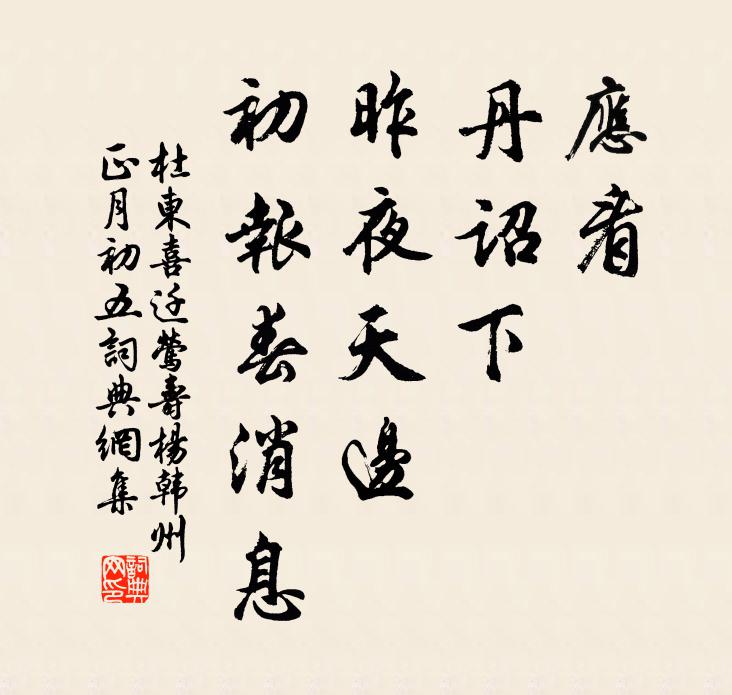 應看
丹詔下
昨夜天邊
初報春消息
杜東喜迁鶯壽楊韩州
正月初五詞典網集
詞典網印